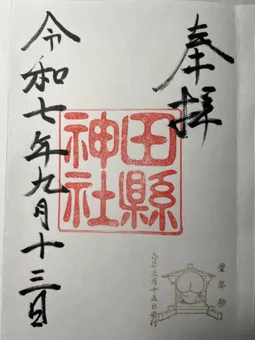 奉拝
田縣
神社
豊年祭
令和七年九月十三日